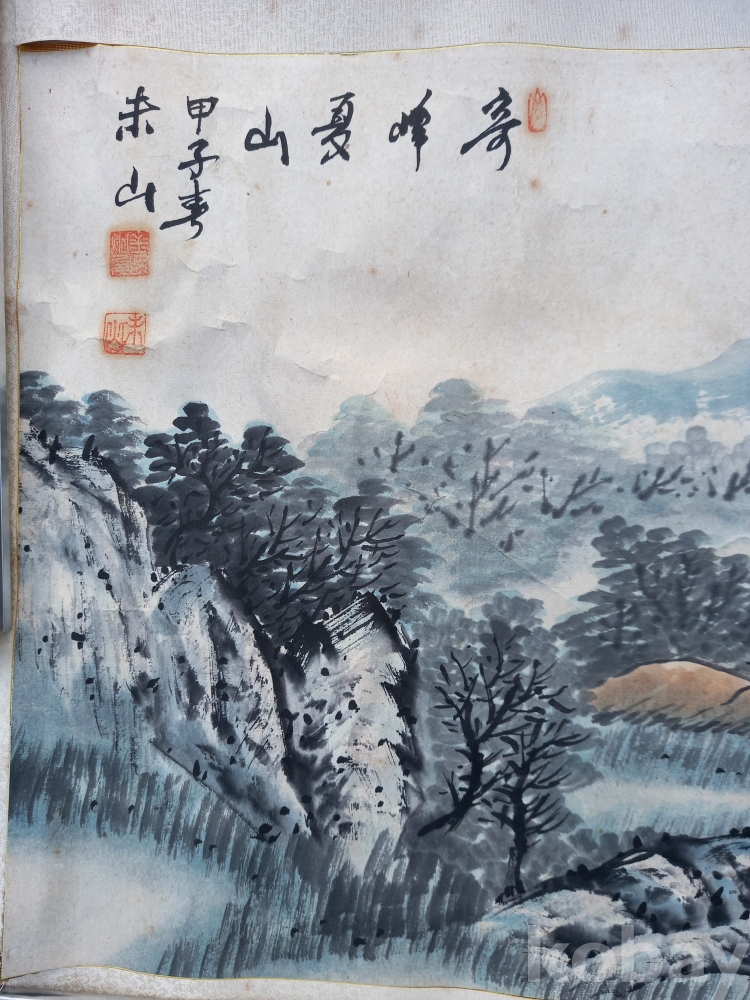 奇峰夏山
甲子春
未山
kobay